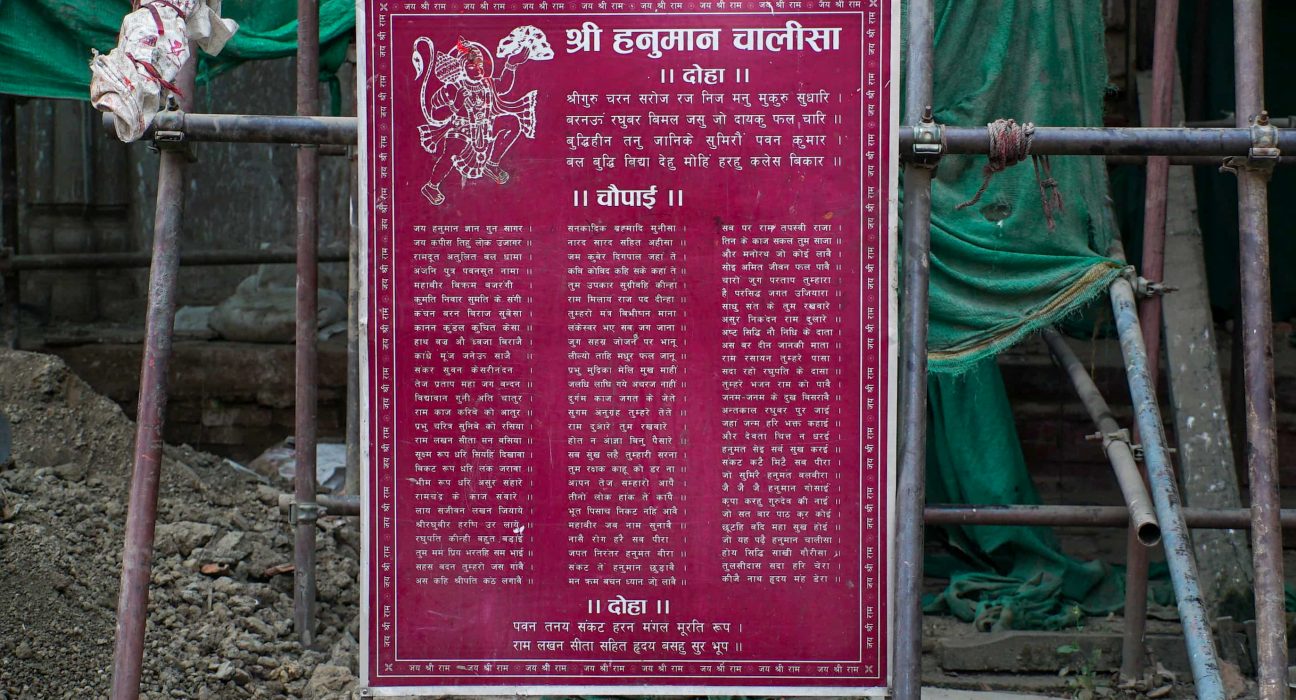 जय श्री राम जय श्री राम जय श्री राम जय श्री राम जय श्री राम जय श्री राम जय श्री राम जय श्री राम
श्री हनुमान चालीसा
।। दोहा ।।
श्रीगुरु चरन सरोज रज निज मनु मुकुरु सुधारि ।
बरनऊं रघुवर बिमल जसु जो दायकु फल चारि ॥
बुद्धिहीन तनु जानिके सुमिरौं पवन कुमार ।
बल बुद्धि विद्या देहु मोहिं हरहु कलेस बिकार ॥
।। चौपाई ।।
जय हनुमान ज्ञान गुन सागर ।
जय कपीस तिहुं लोक उजागर ॥
रामदूत अतुलित बल धामा ।
अंजनि पुत्र पवनसुत नामा ॥
महाबीर विक्रम बजरंगी ।
कुमति निवार सुमति के संगी ॥
कंचन बरन बिराज सुबेसा ।
कानन कुंडल कुंचित केसा ॥
हाथ बज्र औ ध्वजा बिराजै ।
कांधे मूंज जनेऊ साजै ॥
संकर सुवन केसरीनंदन ।
तेज प्रताप महा जग बन्दन ॥
विद्यावान गुनी अति चातुर ।
राम काज करिबे को आतुर ॥
प्रभु चरित्र सुनिबे को रसिया ।
राम लखन सीता मन बसिया ॥
सूक्ष्म रूप धरि सियहि दिखावा ।
बिकट रूप धरि लंक जरावा ॥
भीम रूप धरि असुर संहारे ।
रामचंद्र के काज संवारे ॥
लाय सजीवन लखन जियाये ।
श्रीरघुबीर हरषि उर लाये ॥
रघुपति कीन्ही बहुत बड़ाई ।
तुम मम प्रिय भरतहि सम भाई ॥
सहस बदन तुम्हरो जस गावैं ।
अस कहि श्रीपति कंठ लगावैं ॥
सनकादिक ब्रह्मादि मुनीसा ।
नारद सारद सहित अहीसा ॥
जम कुबेर दिगपाल जहां ते ।
कबि कोबिद कहि सके कहां ते ॥
तुम उपकार सुग्रीवहि कीन्हा ।
राम मिलाय राज पद दीन्हा ॥
तुम्हरो मंत्र बिभीषन माना ।
लंकेस्वर भए सब जग जाना ॥
जुग सहस्र जोजन पर भानू ।
लील्यो ताहि मधुर फल जानू ॥
प्रभु मुद्रिका मेलि मुख माहीं ।
जलधि लांघि गये अचरज नाहीं ॥
दुर्गम काज जगत के जेते ।
सुगम अनुग्रह तुम्हरे तेते ॥
राम दुआरे तुम रखवारे ।
होत न आज्ञा बिनु पैसारे ॥
सब सुख लहै तुम्हारी सरना ।
तुम रक्षक काहू को डर ना ॥
आपन तेज सम्हारो आपै ।
तीनों लोक हांक तें कांपै ॥
भूत पिसाच निकट नहिं आवै ।
महाबीर जब नाम सुनावै ॥
नासै रोग हरै सब पीरा ।
जपत निरंतर हनुमत बीरा ॥
संकट तें हनुमान छुड़ावै ।
मन क्रम बचन ध्यान जो लावै ॥
सब पर राम तपस्वी राजा ।
तिन के काज सकल तुम साजा ॥
और मनोरथ जो कोई लावै ।
सोइ अमित जीवन फल पावै ॥
चारो जुग परताप तुम्हारा ।
है परसिद्ध जगत उजियारा ॥
साधु संत के तुम रखवारे ।
असुर निकंदन राम दुलारे ॥
अष्ट सिद्धि नौ निधि के दाता ।
अस बर दीन जानकी माता ॥
राम रसायन तुम्हरे पासा ।
सदा रहो रघुपति के दासा ॥
तुम्हरे भजन राम को पावै ।
जनम-जनम के दुख बिसरावै ॥
अन्तकाल रघुबर पुर जाई ।
जहां जन्म हरि भक्त कहाई ॥
और देवता चित्त न धरई ।
हनुमत सेइ सर्व सुख करई ॥
संकट कटै मिटै सब पीरा ।
जो सुमिरै हनुमत बलबीरा ॥
जै जै जै हनुमान गोसाईं ।
कृपा करहु गुरुदेव की नाईं ॥
जो सत बार पाठ कर कोई ।
छूटहि बंदि महा सुख होई ॥
जो यह पढ़ै हनुमान चालीसा ।
होय सिद्धि साखी गौरीसा ॥
तुलसीदास सदा हरि चेरा ।
कीजै नाथ हृदय मंह डेरा ॥
।। दोहा ।।
पवन तनय संकट हरन मंगल मूरति रूप ।
राम लखन सीता सहित हृदय बसहु सुर भूप ॥
जय श्री राम जय श्री राम जय श्री राम जय श्री राम जय श्री राम जय श्री राम जय श्री राम जय श्री राम